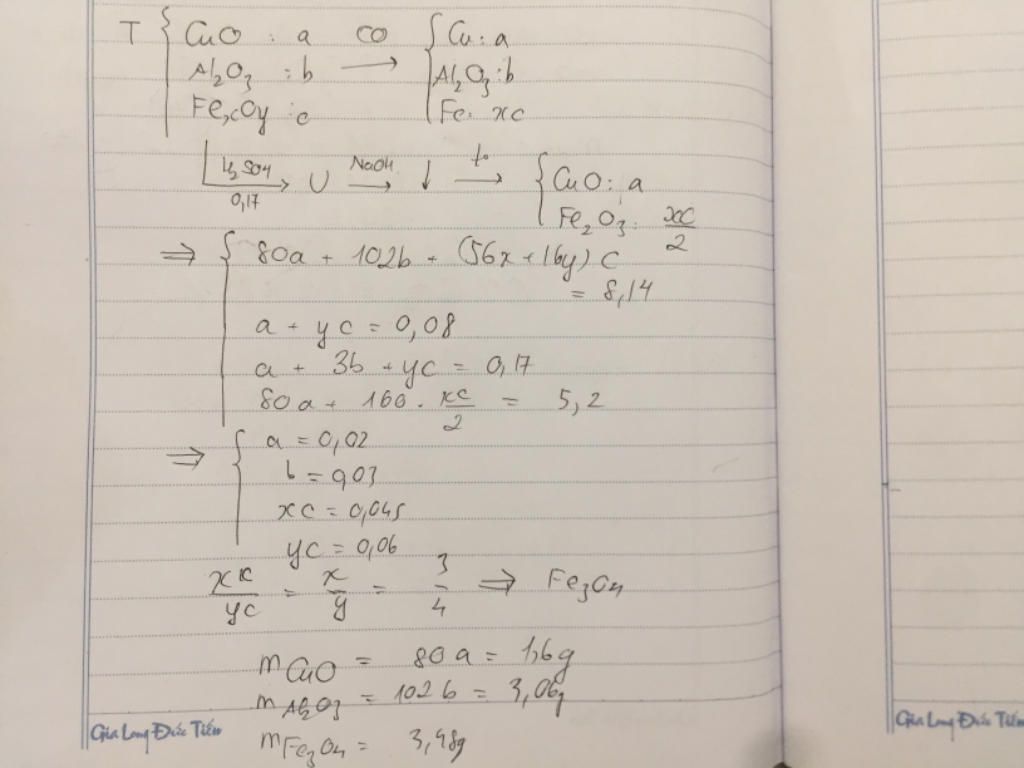 T { CuO : a CO → { Cu : a
Al₂O₃ : b Al₂O₃ : b
FexOy : c Fe : xc
H₂SO₄ 0,17 → U NaOH → ↓ t° → { CuO : a
Fe₂O₃ : xc/2
⇒ { 80a + 102b + (56x + 16y) c
= 8,14
a + yc = 0,08
a + 3b + yc = 0,17
80a + 160 . xc/2 = 5,2
⇒ { a = 0,02
b = 0,03
xc = 0,045
yc = 0,06
xc/yc = x/y = 3/4 ⇒ Fe₃O₄
mCuO = 80a = 1,6g
mAl₂O₃ = 102b = 3,06g
mFe₃O₄ = 3,48g
Gia Long Đức Tiến
Gia Long Đức Tiến